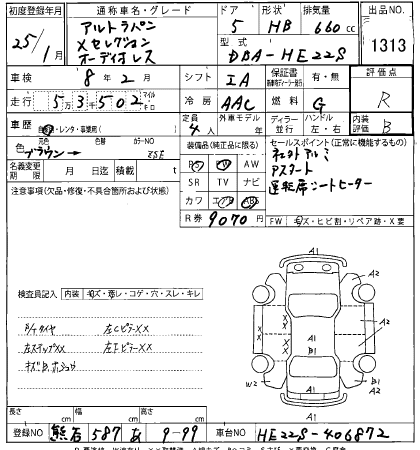 初度登録年月 通称車名・グレード ドア 形状 排気量 出品NO.
25/1月 アルトラパン Xセレクション オーディオレス 5 HB 660cc 1313
型式 DBA-HE22S
車検 8年2月 シフト IA 保証書 有・無 評価点 R
走行 53,502 マイル キロ 冷房 AAC 燃料 G
車歴 自家用・レンタ・事業用( ) 定員 4人 外車モデル 年 ディーラー 並行 ハンドル 左・右 内装評価 B
色 元色 ブラウン→ 色替 カラーNO ZSE
装備品(純正品に限る) セールスポイント(正常に機能するもの)
名義変更期限 月 日迄 積載 t PS PW AW
注意事項(欠品・修復・不具合箇所および状態) SR TV ナビ
カワ エアB ABS
Pスタート
運転席シートヒーター
R券 9070円 FW キズ・ヒビ割・リペア跡・X要
検査員記入 内装 キズ・汚レ・コゲ・穴・スレ・キレ
A1
A2
A2
A1
B1
A1
W2
B1
A2
A1
XX
XX
左CピラーXX
左ステップXX 左IピラーXX
長さ cm 幅 cm 高さ cm
登録NO 熊石 587 あ 9-99 車台NO HE22S-406872